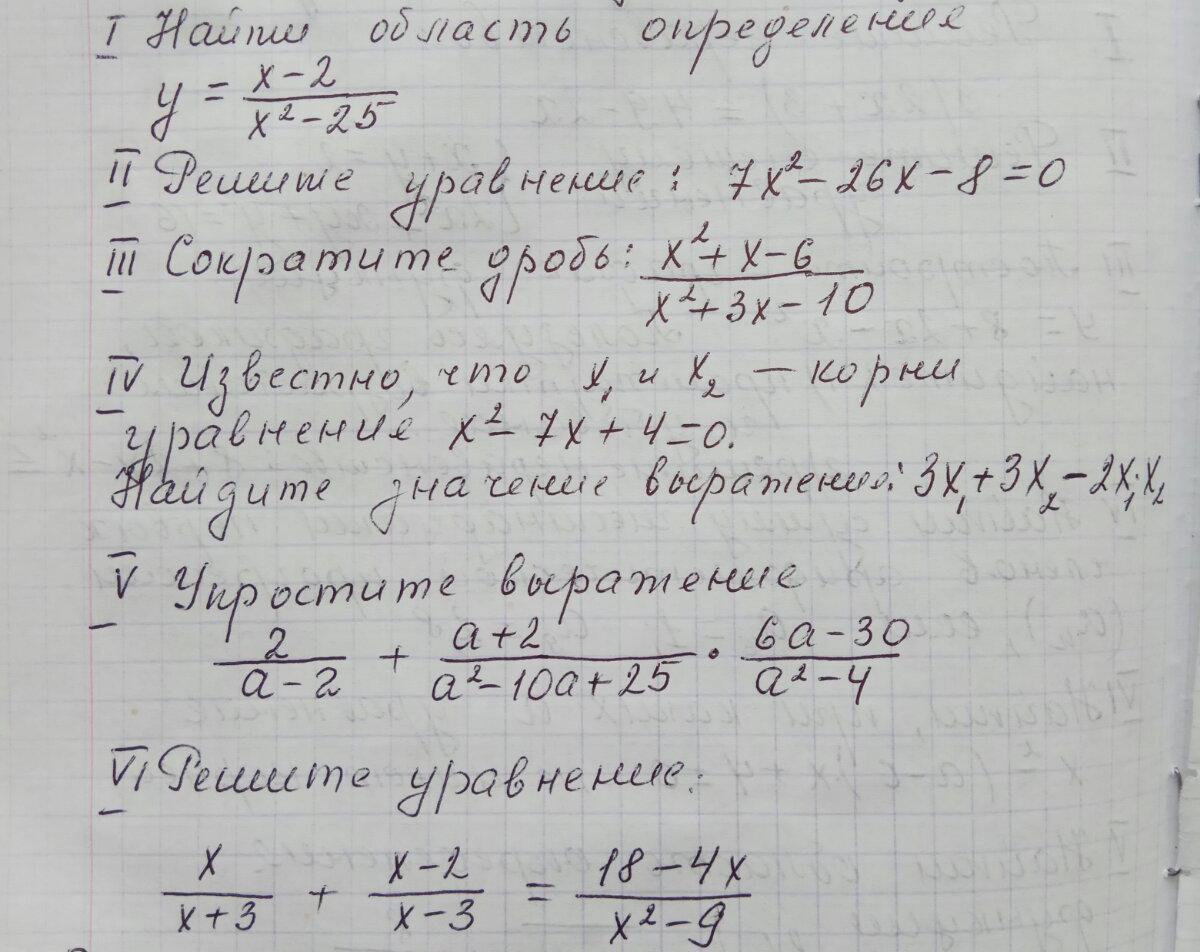 I Найти область определения
y = (x-2)/(x²-25)
II Решите уравнение: 7x²-26x-8=0
III Сократите дробь: (x²+x-6)/(x²+3x-10)
IV Известно, что x₁ и x₂ - корни
уравнения x²-7x+4=0.
Найдите значение выражения: 3x₁+3x₂-2x₁·x₂
V Упростите выражение
2/(a-2) + (a+2)/(a²-10a+25) · (6a-30)/(a²-4)
VI Решите уравнение:
x/(x+3) + (x-2)/(x-3) = (18-4x)/(x²-9)